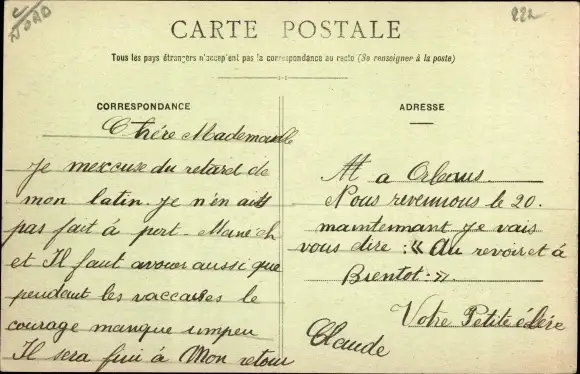 C
NORD
222
CARTE POSTALE
Tous les pays étrangers n'acceptent pas la correspondance au recto (Se renseigner à la poste)
CORRESPONDANCE
Chére Mademoiselle
Je mexcuse du retard de
mon latin. Je n'en ait
pas fait á port. Marie ch
et Il faut avouer aussi que
pendant les vaccanses le
courage manque umpeu
Il sera fini á Mon retour
ADRESSE
M a Orbans.
Nous revennous le 20.
maintemant Je vais
vous dire : « Au revoir et á
Bientot. ».
Votre Petite élére
Claude